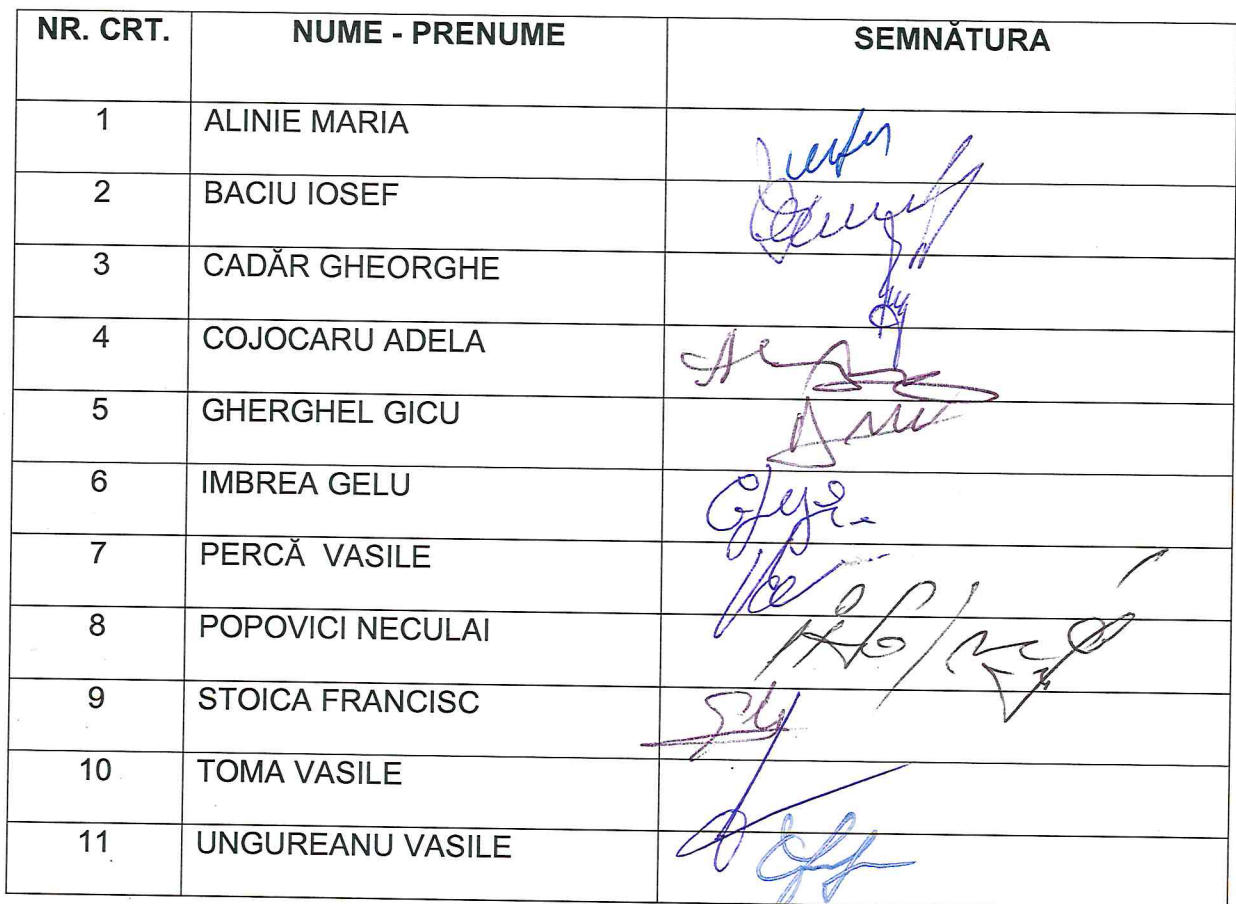 NR. CRT. NUME - PRENUME SEMNĂTURA
1 ALINIE MARIA
2 BACIU IOSEF
3 CADĂR GHEORGHE
4 COJOCARU ADELA
5 GHERGHEL GICU
6 IMBREA GELU
7 PERCĂ VASILE
8 POPOVICI NECULAI
9 STOICA FRANCISC
10 TOMA VASILE
11 UNGUREANU VASILE